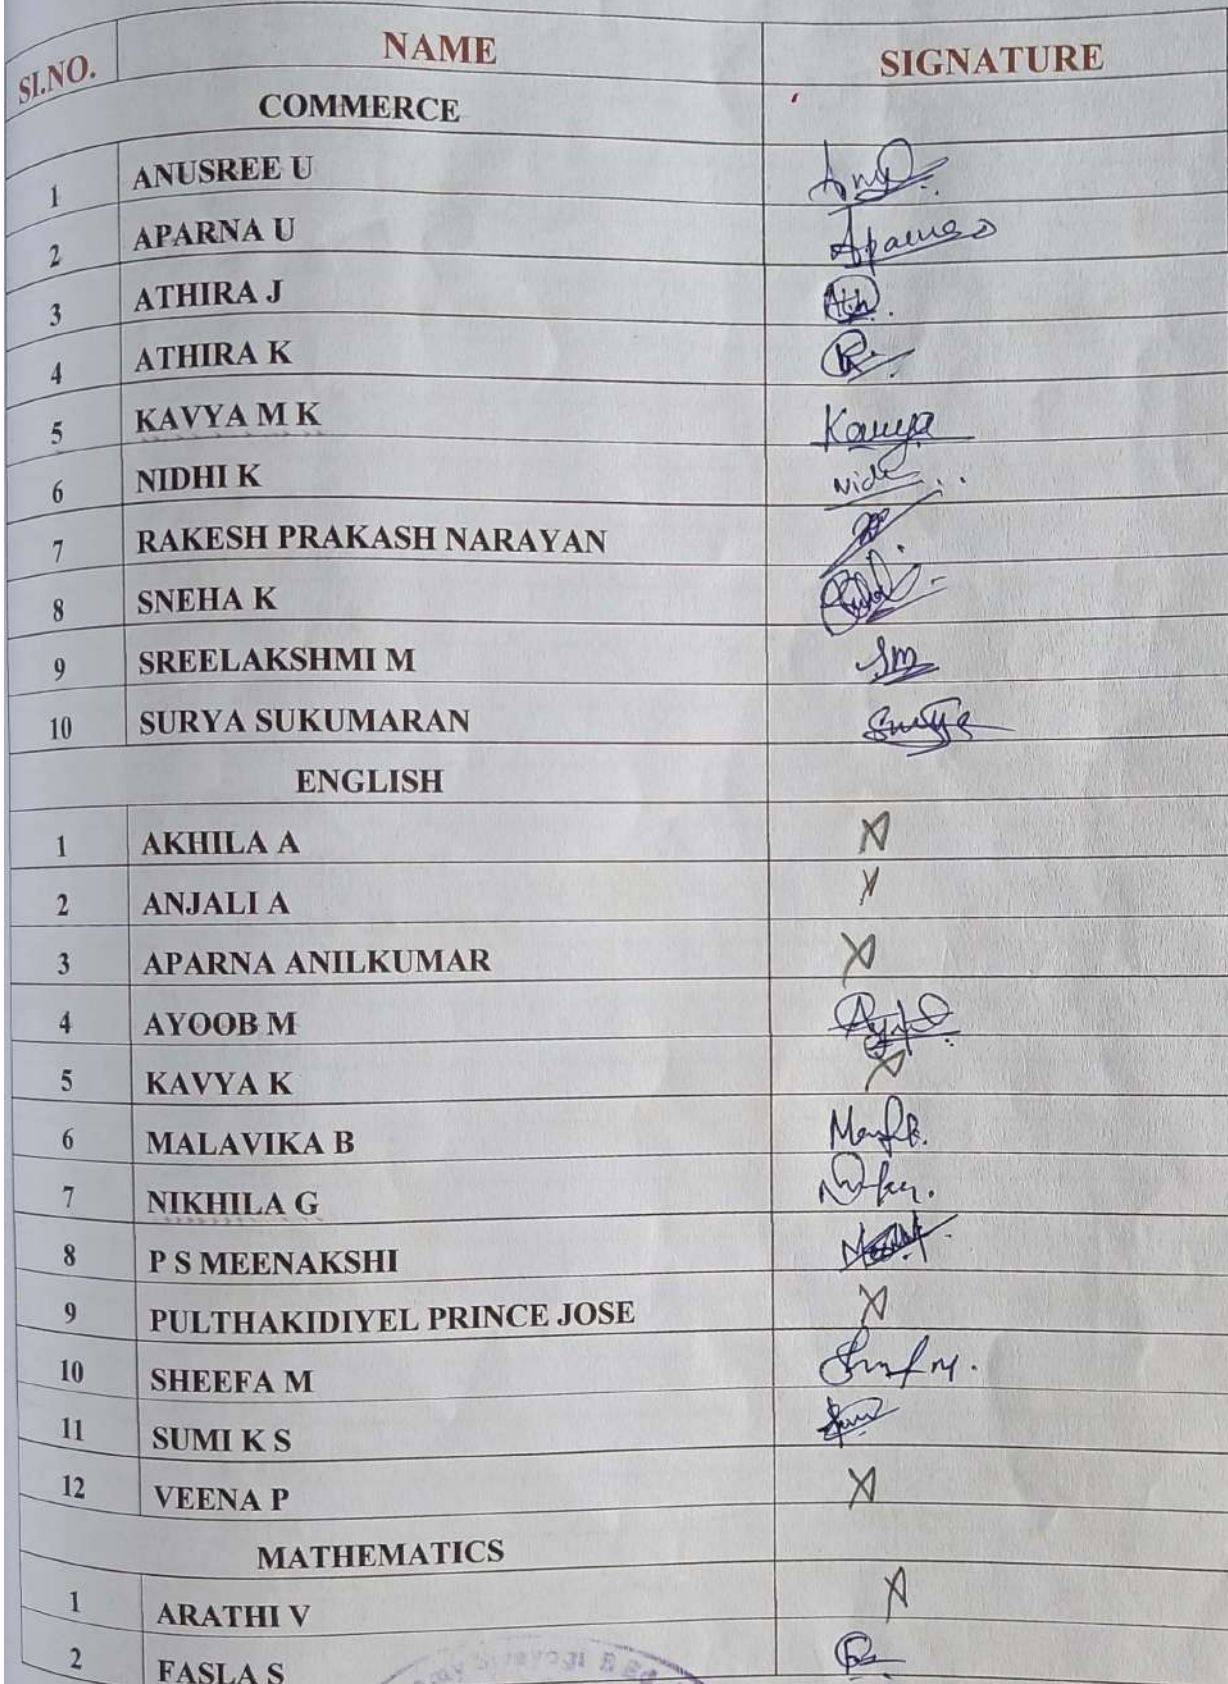 SI.NO. NAME SIGNATURE
COMMERCE
1 ANUSREE U
2 APARNA U Aparna
3 ATHIRA J Ath
4 ATHIRA K
5 KAVYA M K Kavya
6 NIDHI K
7 RAKESH PRAKASH NARAYAN
8 SNEHA K
9 SREELAKSHMI M Sm
10 SURYA SUKUMARAN Surya
ENGLISH
1 AKHILA A
2 ANJALI A
3 APARNA ANILKUMAR
4 AYOOB M
5 KAVYA K
6 MALAVIKA B
7 NIKHILA G
8 P S MEENAKSHI
9 PULTHAKIDIYEL PRINCE JOSE
10 SHEEFA M
11 SUMI K S
12 VEENA P
MATHEMATICS
1 ARATHI V
2 FASLA S